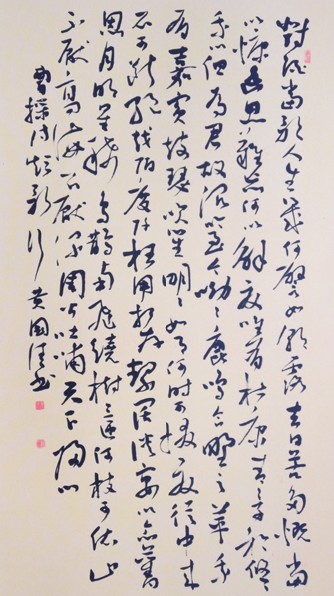 對酒當歌人生幾何譬如朝露去日苦多慨當
以慷憂思難忘何以解憂唯有杜康青青子衿悠悠
我心但為君故沉吟至今呦呦鹿鳴食野之苹我
有嘉賓鼓瑟吹笙明明如月何時可掇憂從中來
不可斷絕越陌度阡枉用相存契闊談宴心念舊
恩月明星稀烏鵲南飛繞樹三匝何枝可依山
不厭高海不厭深周公吐哺天下歸心
曹操詩短歌行 黄國書